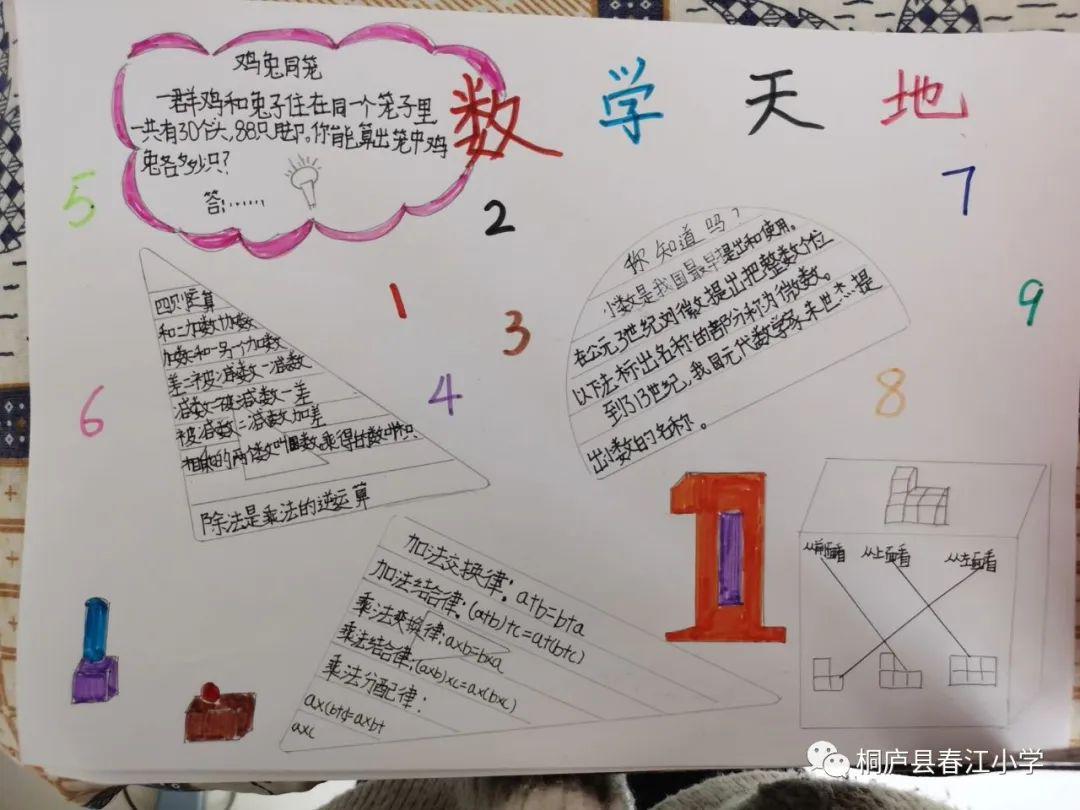 数学天地
鸡兔同笼
一群鸡和兔子住在同一个笼子里
一共有30个头,88只脚。你能算出笼中鸡
兔各多少只?
答:……
5
2
7
1
3
9
6
4
8
四则运算
和=加数+加数
加数=和-另一个加数
差=被减数-减数
减数=被减数-差
被减数=减数加差
相同的两个数叫因数,乘得的数叫积
除法是乘法的逆运算
你知道吗?
小数是我国最早提出和使用。
在公元3世纪刘徽提出把整数个位
以下无标出名称的部分称为微数。
到了13世纪,我国元代数学家朱世杰提
出小数的名称。
加法交换律:a+b=b+a
加法结合律:(a+b)+c=a+(b+c)
乘法交换律:a×b=b×a
乘法结合律:(a×b)×c=a×(b×c)
乘法分配律:
a×(b+c)=a×b+
a×c
1
从前面看 从上面看 从左面看
桐庐县春江小学